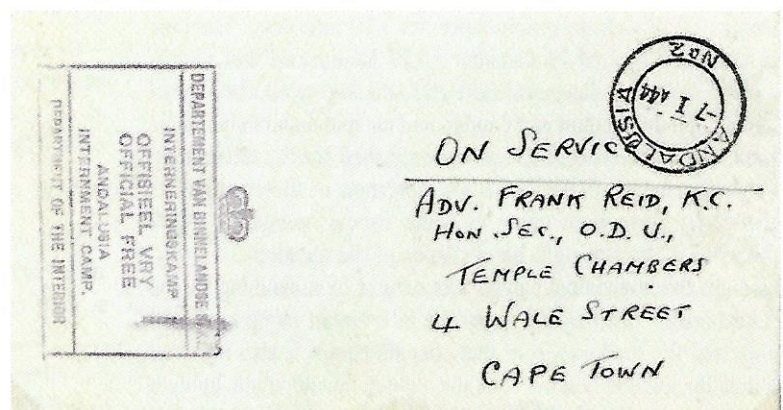 DEPARTEMENT VAN BINNELANDSE
INTERNERINGSKAMP
OFFISIEEL VRY
OFFICIAL FREE
ANDALUSIA
INTERNMENT CAMP.
DEPARTMENT OF THE INTERIOR
ANDALUSIA
-7 I 44
No2
ON SERVICE
ADV. FRANK REID, K.C.
HON. SEC., O.D.U.,
TEMPLE CHAMBERS
4 WALE STREET
CAPE TOWN